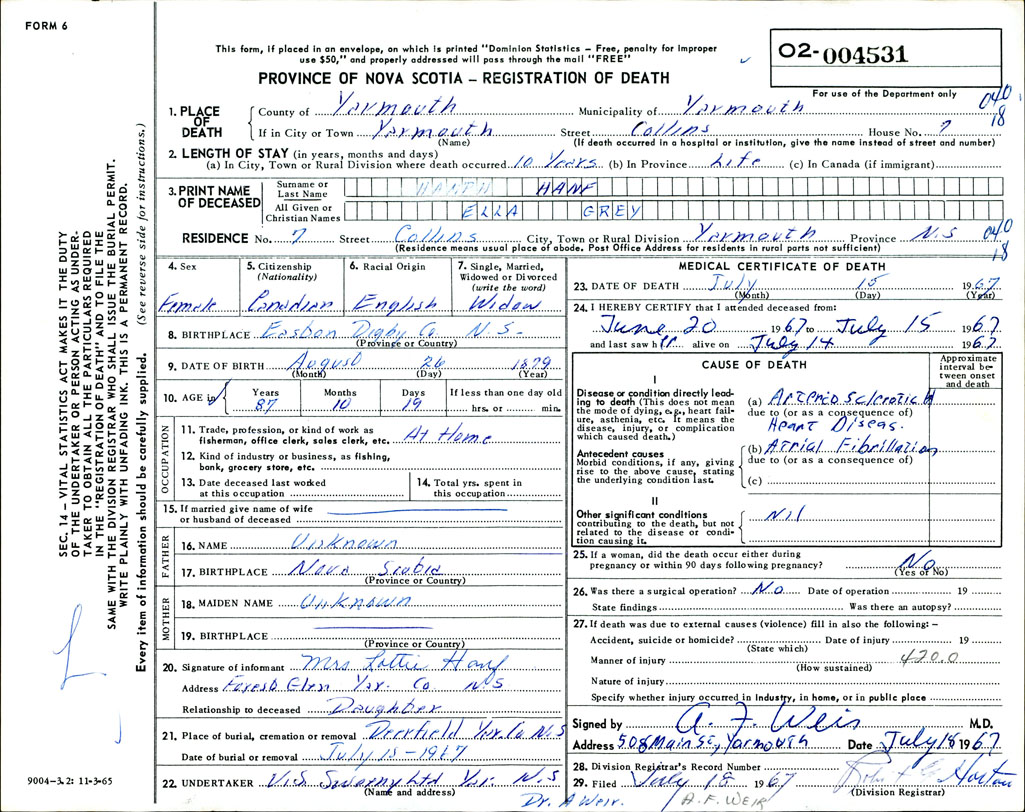 FORM 6
This form, if placed in an envelope, on which is printed "Dominion Statistics – Free, penalty for improper
use $50," and properly addressed will pass through the mail "FREE"
PROVINCE OF NOVA SCOTIA – REGISTRATION OF DEATH
02-004531
For use of the Department only
040
18
1. PLACE OF DEATH
County of Yarmouth Municipality of Yarmouth
If in City or Town Yarmouth Street Collins House No. 7
(Name) (If death occurred in a hospital or institution, give the name instead of street and number)
2. LENGTH OF STAY (in years, months and days)
(a) In City, Town or Rural Division where death occurred 10 Years (b) In Province Life (c) In Canada (if immigrant)
3. PRINT NAME OF DECEASED
Surname or Last Name HANF
All Given or Christian Names ELLA GREY
RESIDENCE No. 7 Street Collins City, Town or Rural Division Yarmouth Province N.S
040
18
(Residence means usual place of abode. Post Office Address for residents in rural parts not sufficient)
4. Sex
Female
5. Citizenship
(Nationality)
Canadian
6. Racial Origin
English
7. Single, Married,
Widowed or Divorced
(write the word)
Widow
8. BIRTHPLACE Easton Digby Co. N.S.
(Province or Country)
9. DATE OF BIRTH August 26 1879
(Month) (Day) (Year)
10. AGE in Years Months Days If less than one day old
87 10 19 hrs. or min.
OCCUPATION
11. Trade, profession, or kind of work as
fisherman, office clerk, sales clerk, etc. At Home
12. Kind of industry or business, as fishing,
bank, grocery store, etc.
13. Date deceased last worked
at this occupation
14. Total yrs. spent in
this occupation
15. If married give name of wife
or husband of deceased
FATHER
16. NAME Unknown
17. BIRTHPLACE Nova Scotia
(Province or Country)
MOTHER
18. MAIDEN NAME Unknown
19. BIRTHPLACE
(Province or Country)
20. Signature of informant Mrs Lottie Hanf
Address Forest Glen Yar. Co N.S
Relationship to deceased Daughter
21. Place of burial, cremation or removal Deerfield Yar. Co N.S
Date of burial or removal July 18-1967
22. UNDERTAKER Sweeny Ltd Yar. N.S
(Name and address)
MEDICAL CERTIFICATE OF DEATH
23. DATE OF DEATH July 15 1967
(Month) (Day) (Year)
24. I HEREBY CERTIFY that I attended deceased from:
June 20 1967 to July 15 1967
and last saw her alive on July 14 1967
CAUSE OF DEATH
Approximate
interval be-
tween onset
and death
I
Disease or condition directly lead-
ing to death (This does not mean
the mode of dying, e.g., heart fail-
ure, asthenia, etc. It means the
disease, injury, or complication
which caused death.)
(a) Arteriosclerotic
due to (or as a consequence of)
Heart Diseas.
Antecedent causes
Morbid conditions, if any, giving
rise to the above cause, stating
the underlying condition last.
(b) Atrial Fibrillation
due to (or as a consequence of)
(c)
II
Other significant conditions
contributing to the death, but not
related to the disease or condi-
tion causing it.
Nil
25. If a woman, did the death occur either during
pregnancy or within 90 days following pregnancy? No
(Yes or No)
26. Was there a surgical operation? No Date of operation 19
State findings Was there an autopsy?
27. If death was due to external causes (violence) fill in also the following: –
Accident, suicide or homicide? Date of injury 19
(State which)
Manner of injury 420.0
(How sustained)
Nature of injury
Specify whether injury occurred in industry, in home, or in public place
Signed by A. F. Weir M.D.
Address 508 Main St, Yarmouth Date July 18 1967
28. Division Registrar's Record Number
29. Filed July 18 1967 Horton
(Division Registrar)
Dr. A Weir. A. F. WEIR
SEC. 14 – VITAL STATISTICS ACT MAKES IT THE DUTY
OF THE UNDERTAKER OR PERSON ACTING AS UNDER-
TAKER TO OBTAIN ALL THE PARTICULARS REQUIRED
IN THE "REGISTRATION OF DEATH" AND TO FILE THE
SAME WITH THE DIVISION REGISTRAR WHO SHALL ISSUE THE BURIAL PERMIT.
WRITE PLAINLY WITH UNFADING INK. THIS IS A PERMANENT RECORD.
Every item of information should be carefully supplied. (See reverse side for instructions.)
9004–3.2: 11-3-65